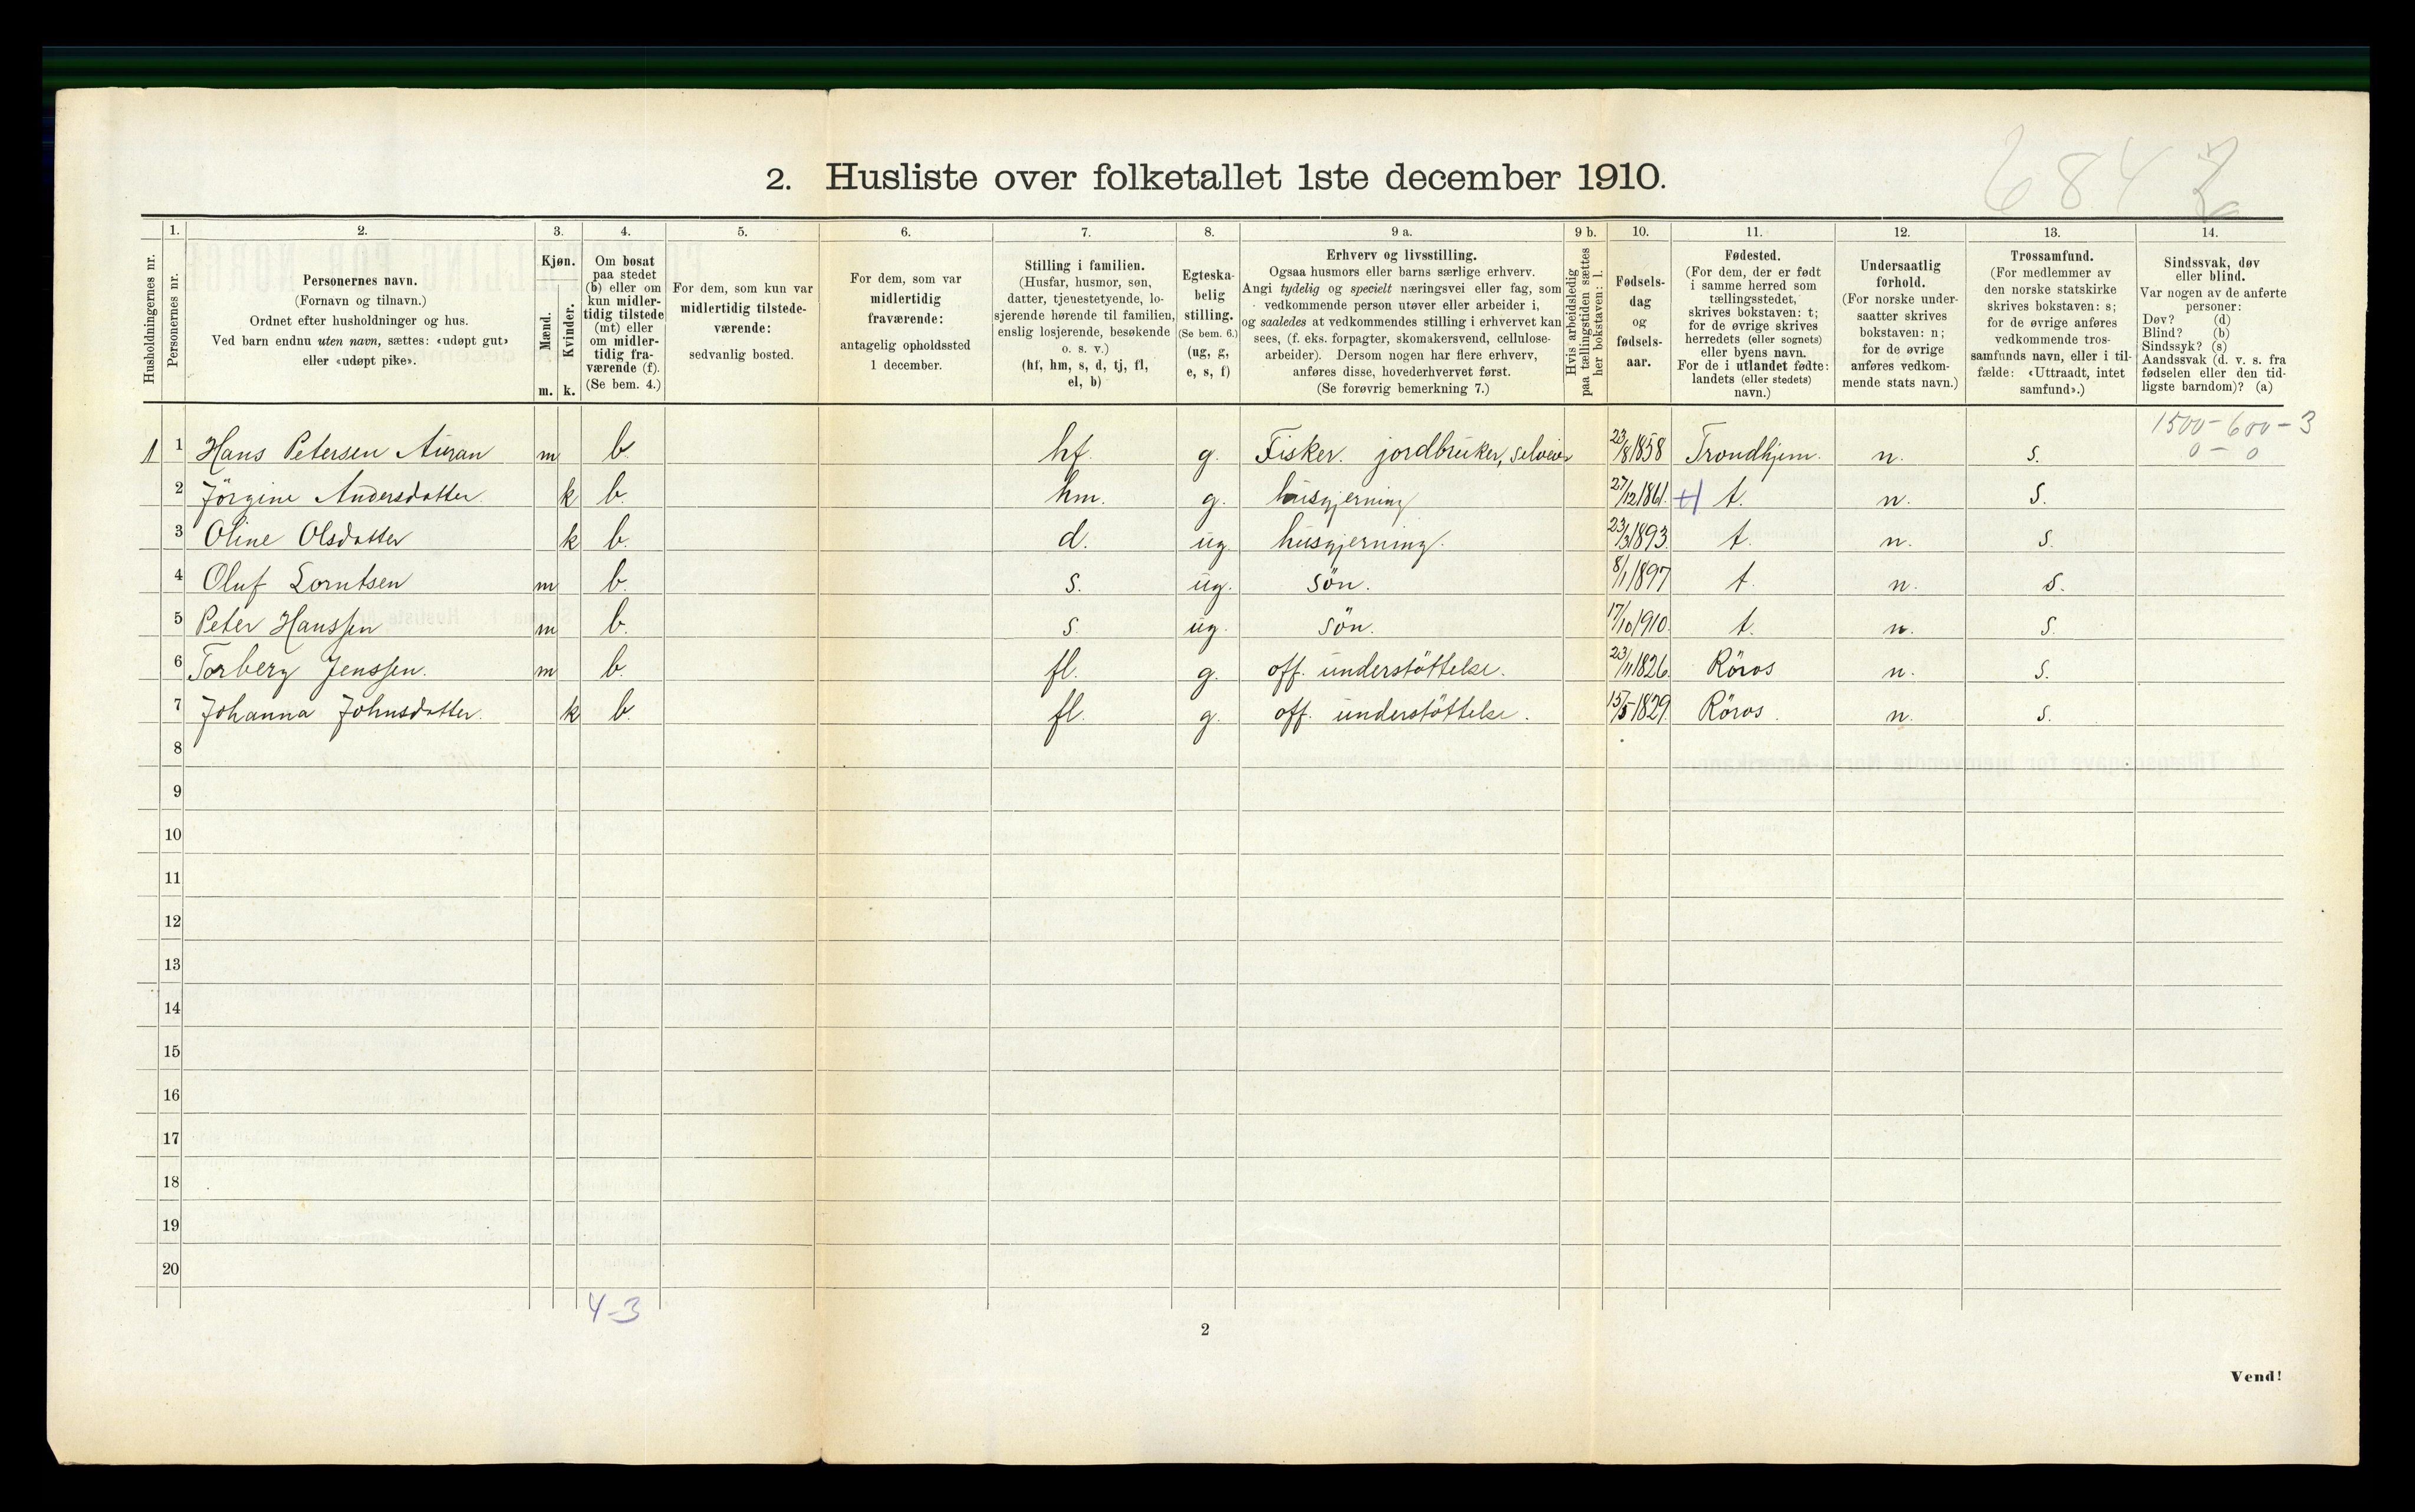 2. Husliste over folketallet 1ste december 1910.
1. 2. 3. 4. 5. 6. 7. 8. 9 a. 9 b. 10. 11. 12. 13. 14.
Husholdningernes nr.
Personernes nr.
Personernes navn.
(Fornavn og tilnavn.)
Ordnet efter husholdninger og hus.
Ved barn endnu uten navn, sættes: «udøpt gut»
eller «udøpt pike».
Kjøn.
Mænd.
Kvinder.
m. k.
Om bosat
paa stedet
(b) eller om
kun midler-
tidig tilstede
(mt) eller
om midler-
tidig fra-
værende (f).
(Se bem. 4.)
For dem, som kun var
midlertidig tilstede-
værende:
sedvanlig bosted.
For dem, som var
midlertidig
fraværende:
antagelig opholdssted
1 december.
Stilling i familien.
(Husfar, husmor, søn,
datter, tjenestetyende, lo-
sjerende hørende til familien,
enslig losjerende, besøkende
o. s. v.)
(hf, hm, s, d, tj, fl,
el, b)
Egteska-
belig
stilling.
(Se bem. 6.)
(ug, g,
e, s, f)
Erhverv og livsstilling.
Ogsaa husmors eller barns særlige erhverv.
Angi tydelig og specielt næringsvei eller fag, som
vedkommende person utøver eller arbeider i,
og saaledes at vedkommendes stilling i erhvervet kan
sees, (f. eks. forpagter, skomakersvend, cellulose-
arbeider). Dersom nogen har flere erhverv,
anføres disse, hovederhvervet først.
(Se forøvrig bemerkning 7.)
Hvis arbeidsledig
paa tællingstiden sættes
her bokstaven: l.
Fødsels-
dag
og
fødsels-
aar.
Fødested.
(For dem, der er født
i samme herred som
tællingsstedet,
skrives bokstaven: t;
for de øvrige skrives
herredets (eller sognets)
eller byens navn.
For de i utlandet fødte:
landets (eller stedets)
navn.)
Undersaatlig
forhold.
(For norske under-
saatter skrives
bokstaven: n;
for de øvrige
anføres vedkom-
mende stats navn.)
Trossamfund.
(For medlemmer av
den norske statskirke
skrives bokstaven: s;
for de øvrige anføres
vedkommende tros-
samfunds navn, eller i til-
fælde: «Uttraadt, intet
samfund».)
Sindssvak, døv
eller blind.
Var nogen av de anførte
personer:
Døv? (d)
Blind? (b)
Sindssyk? (s)
Aandssvak (d. v. s. fra
fødselen eller den tid-
ligste barndom)? (a)
1500 - 600 - 3
0 - 0
1 1 Hans Petersen Auran m b. hf. g. Fisker. jordbruker, selveier 23/8 1858 Trondhjem. n. s.
2 Jörgine Andersdatter. k b. hm. g. husgjerning 27/12 1861. t. n. s.
3 Oline Olsdatter k b. d. ug. husgjerning. 23/3 1893. t. n. s.
4 Oluf Lorntsen m b. s. ug. sön. 8/1 1897 t. n. s.
5 Peter Hanssen m b. s. ug. sön. 17/10 1910. t. n. s.
6 Torberg Jenssen. m b. fl. g. off. understöttelse. 23/11 1826. Röros n. s.
7 Johanna Johnsdatter. k b. fl. g. off. understöttelse. 15/5 1829. Röros. n. s.
8
9
10
11
12
13
14
15
16
17
18
19
20
4-3
2
Vend!